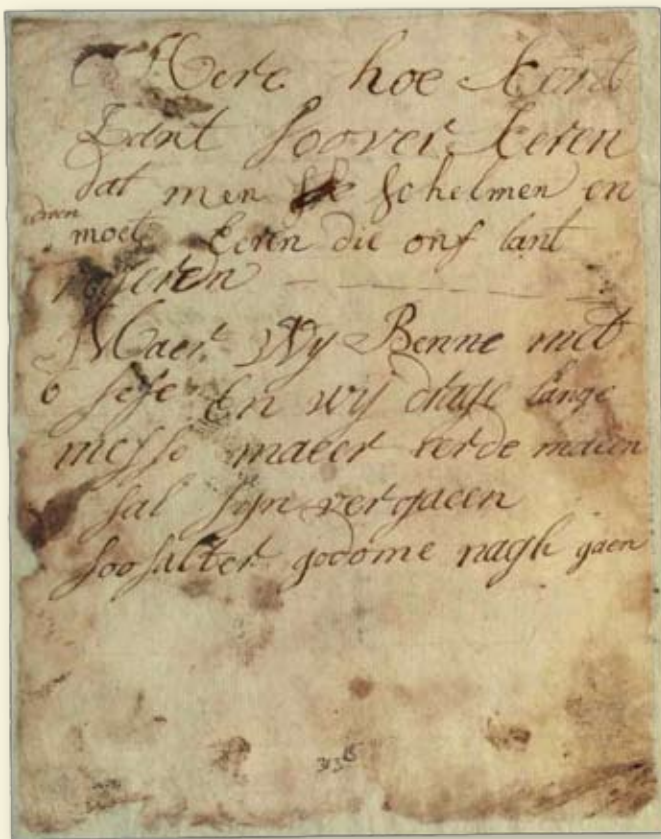 O Here hoe kont
Lant soo ver keeren
dat men schelmen en
moet Eeren die ons lant
regeren
Maer Wy Benne met
6 sese En wij drage lange
messe maeer verde maeen
sal syn vergaeen
soo salter godome nagh gaen